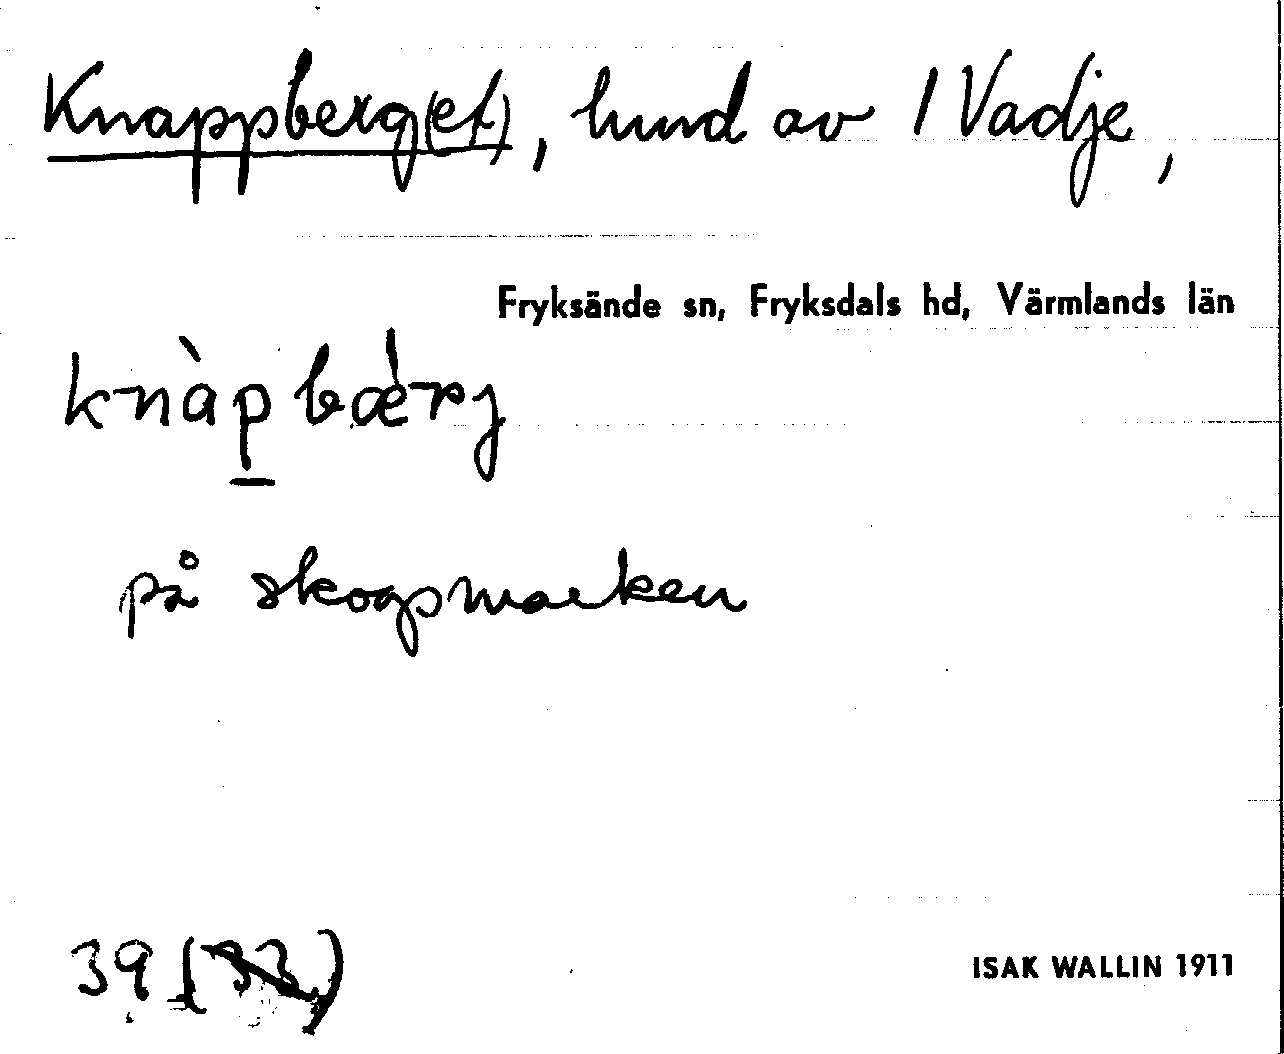 Knappberg(et), lund av 1 Vadje,
Fryksände sn, Fryksdals hd, Värmlands län
knàpbǽrj
på skogsmarken
39 (33)
ISAK WALLIN 1911